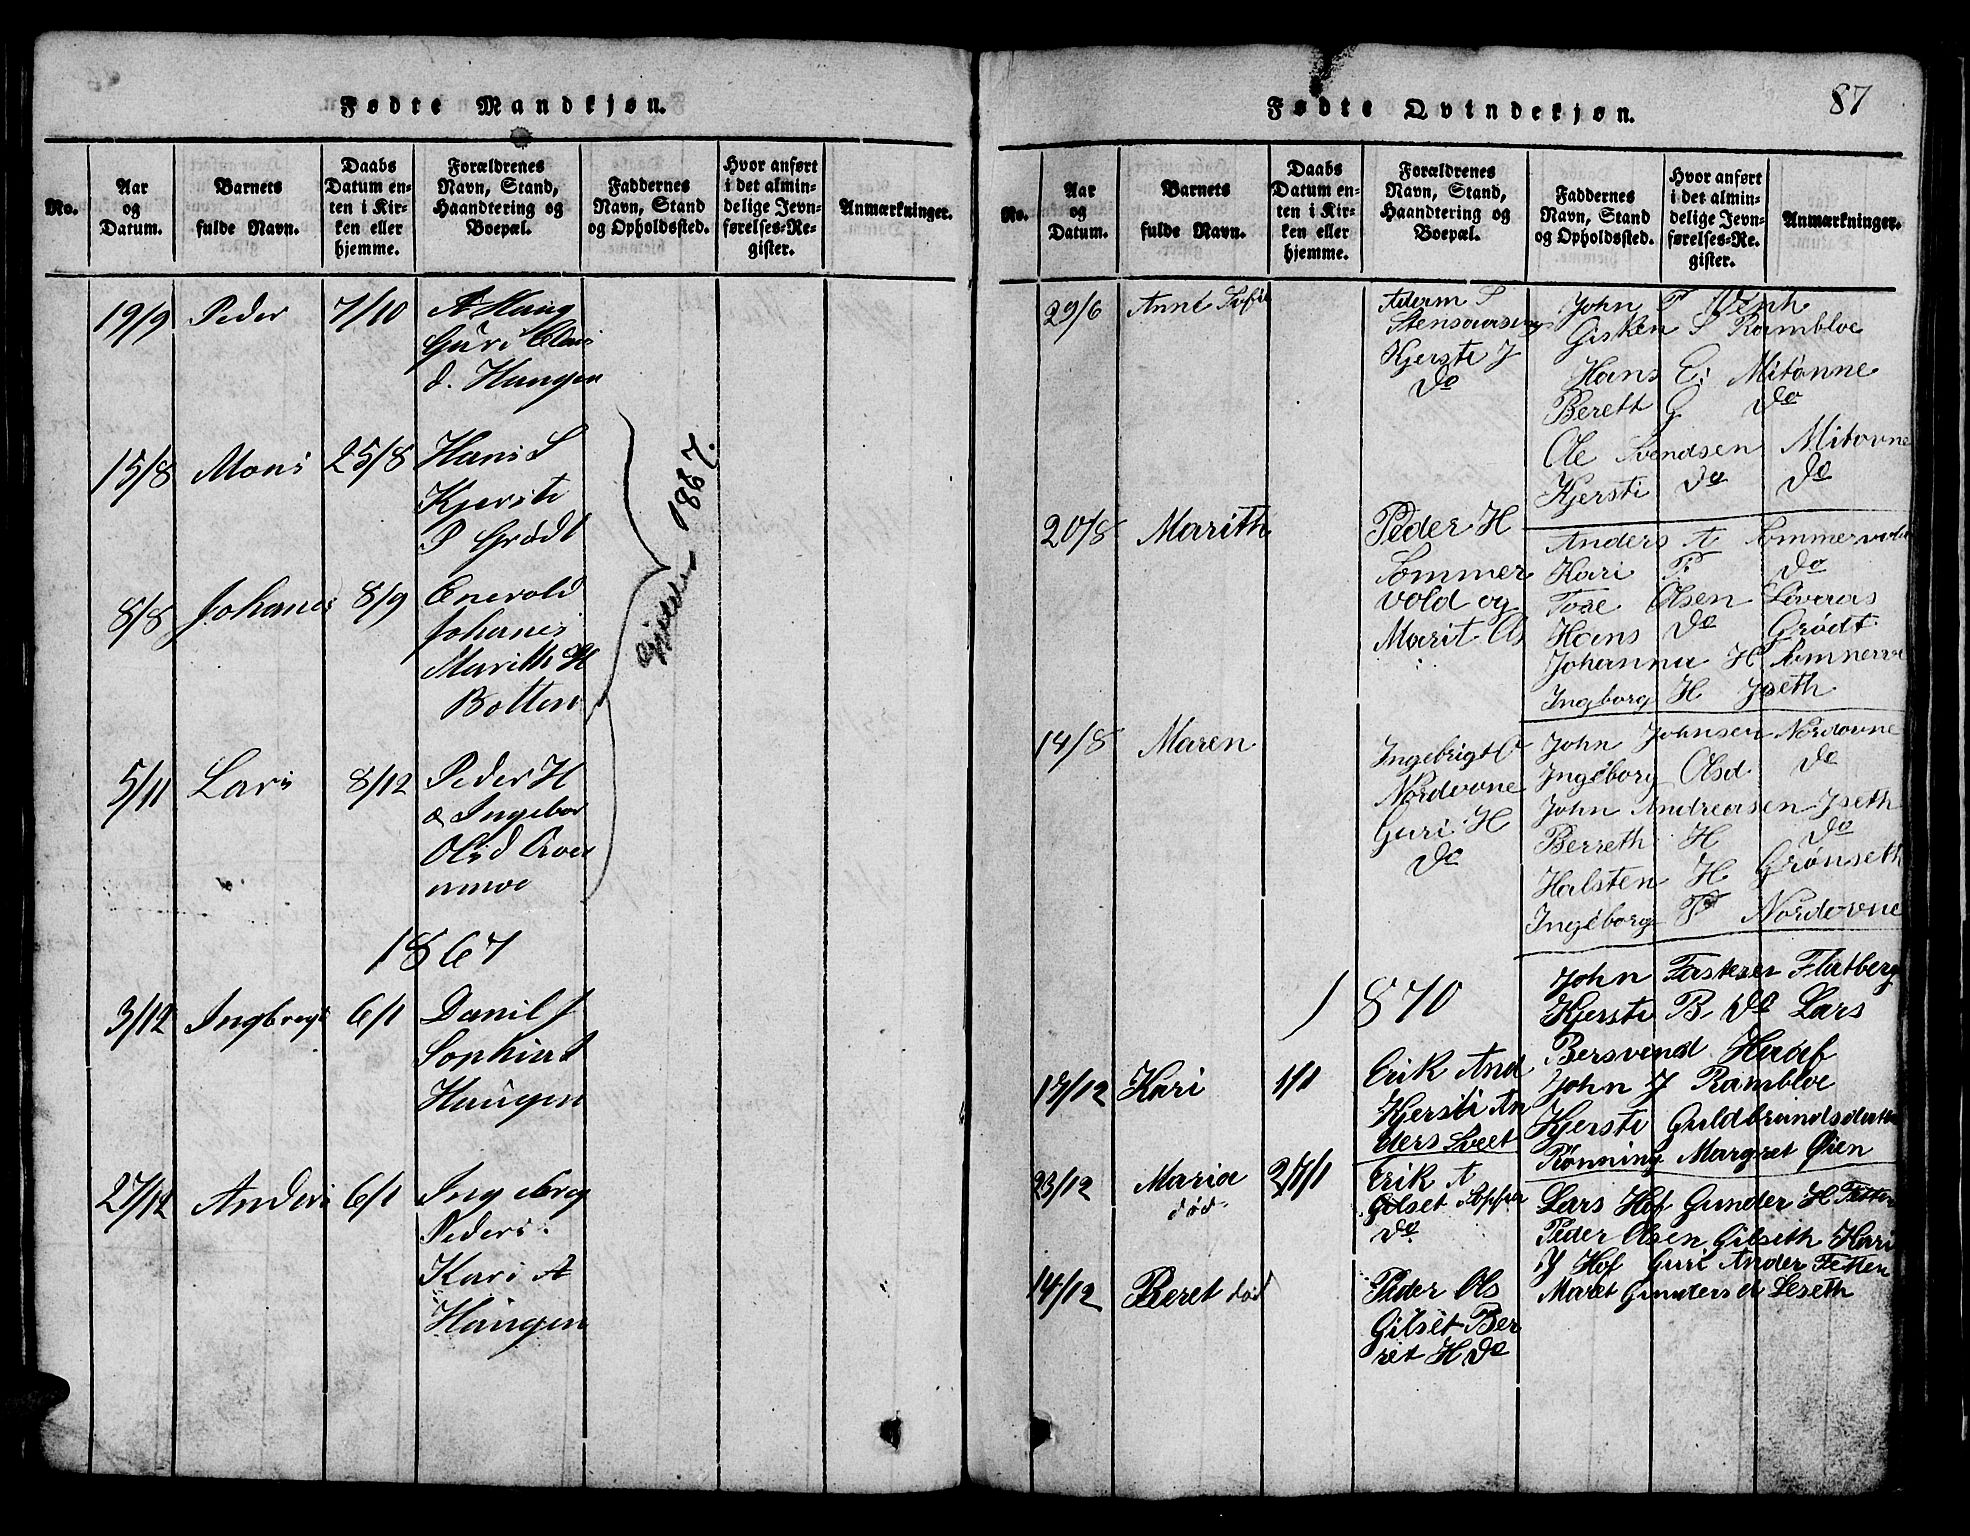 Fødte Mandkjøn.
No.
Aar og Datum.
Barnets fulde Navn.
Daabs Datum enten i Kirken eller hjemme.
Forældrenes Navn, Stand, Haandtering og Boepæl.
Faddernes Navn, Stand og Opholdssted.
Hvor anført i det almindelige Jevnførelses-Register.
Anmærkninger.
19/9 Peder 7/10 A Haug
Guri Olai
d. Haugen
15/8 Mons 25/8 Hans S
Kjersti
P Grødt
8/8 Johanes 8/9 Enevold
Johanes
Marith H
Botten
Gjelder 1867.
5/11 Lars 8/12 Peder H
& Ingebor
Olsd
1867
3/12 Ingbregt 6/1 Danil J
Sophia
Haugen
27/12 Anders 6/1 Ingebreg
Peders.
Kari A
Haugen
Fødte Qvindekjøn.
87
No.
Aar og Datum.
Barnets fulde Navn.
Daabs Datum enten i Kirken eller hjemme.
Forældrenes Navn, Stand, Haandtering og Boepæl.
Faddernes Navn, Stand og Opholdssted.
Hvor anført i det almindelige Jevnførelses-Register.
Anmærkninger.
29/6 Anne Sofie
Stensaaseng
Kjersti J
do
John T
Gisken S Rambloe
Hans E. Mitovne
Berett G do
Ole Svendsen Mitovne
Kjersti do do
20/8 Marith
Peder H
Sommer
vold og
Marit Os
Anders A Sommervold
Kari P. do
Tore Olsen Løveaas
Hans do Grødt
Johanna H Sommervo
Ingborg H Yseth
14/8 Maren
Ingebrigt O
Nordovne
Guri H
do
John Johnsen Nordovne
Ingeborg Olsd do
John Andreasen Yseth
Berreth H do
Halsten H Grønseth
Ingeborg P Nordovne
1870
17/12 Kari 1/1
Erik And
Kjersti An
ders Sveet
John Flatberg
Kjersti B do Lars
Bersvend
John J Rambloe
Kjersti Guldbrandsdatter
Rønning Margret Øien
23/12 Maria død 2/1/1
Erik A
Gilset Soffia
do
Lars Hof Gunder H Fetten
Peder Olsen Gilseth Kari
Y Hof Guri Ander Fetten
Maret Gunders d Leseth
14/12 Beret død
Peder Ols
Gilset Ber
ret H do